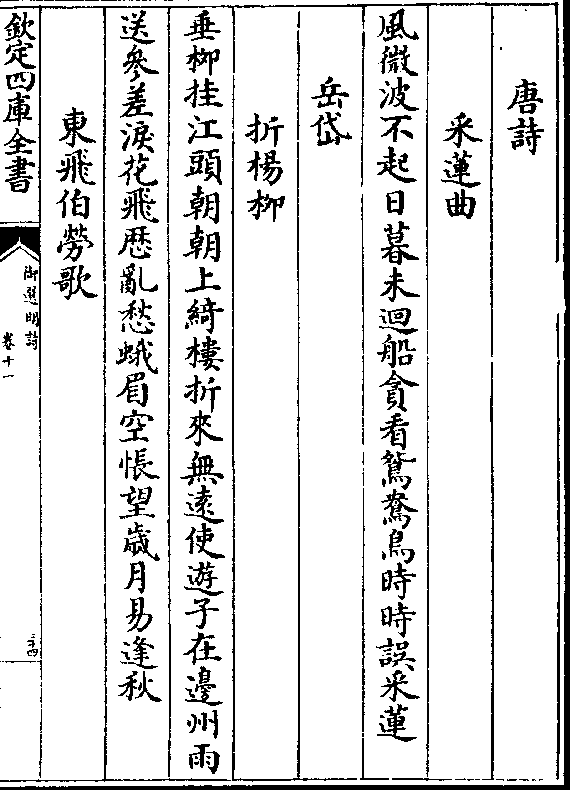 唐詩
采蓮曲
風微波不起日暮未迴船貪看鴛鴦鳥時時誤采蓮
岳岱
折楊柳
垂柳挂江頭朝朝上綺樓折來無遠使遊子在邊州雨
送參差淚花飛歴亂愁蛾眉空悵望歲月易逢秋
東飛伯勞歌
欽定四庫全書
御選明詩
卷十一
三十四